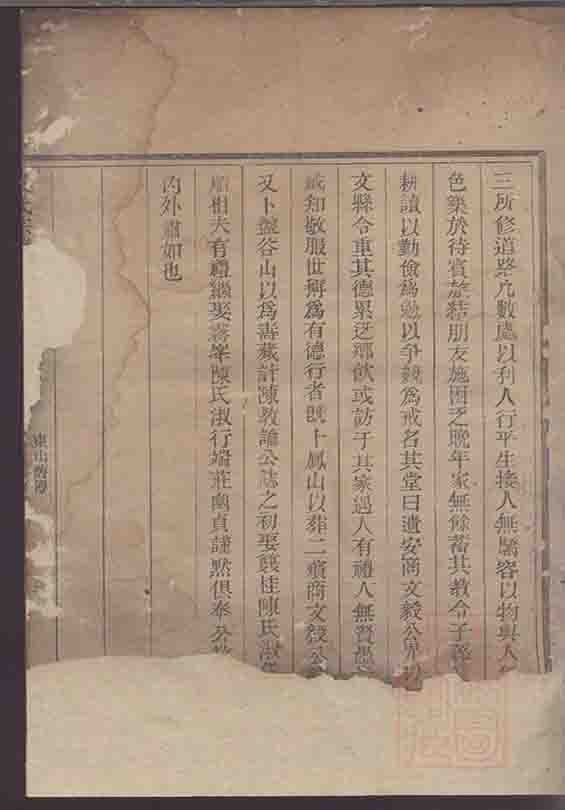 三所修道路凡數處以利人行平生接人無驕容以物與人
色樂於待賓旅結朋友施困乏晚年家無餘蓄其教令子孫
耕讀以勤儉為勉以爭競為戒名其堂曰遺安商文毅公
文縣令重其德累迓鄉飲或訪于其家遇人有禮人無賢愚
咸知敬服世稱為有德行者既卜鳳山以葬二殯商文毅公
又卜盤谷山以為壽藏計陳教諭公誌之初娶陳氏淑
相夫有禮繼娶陳氏淑行端莊幽貞謹默俱奉公教
內外肅如也